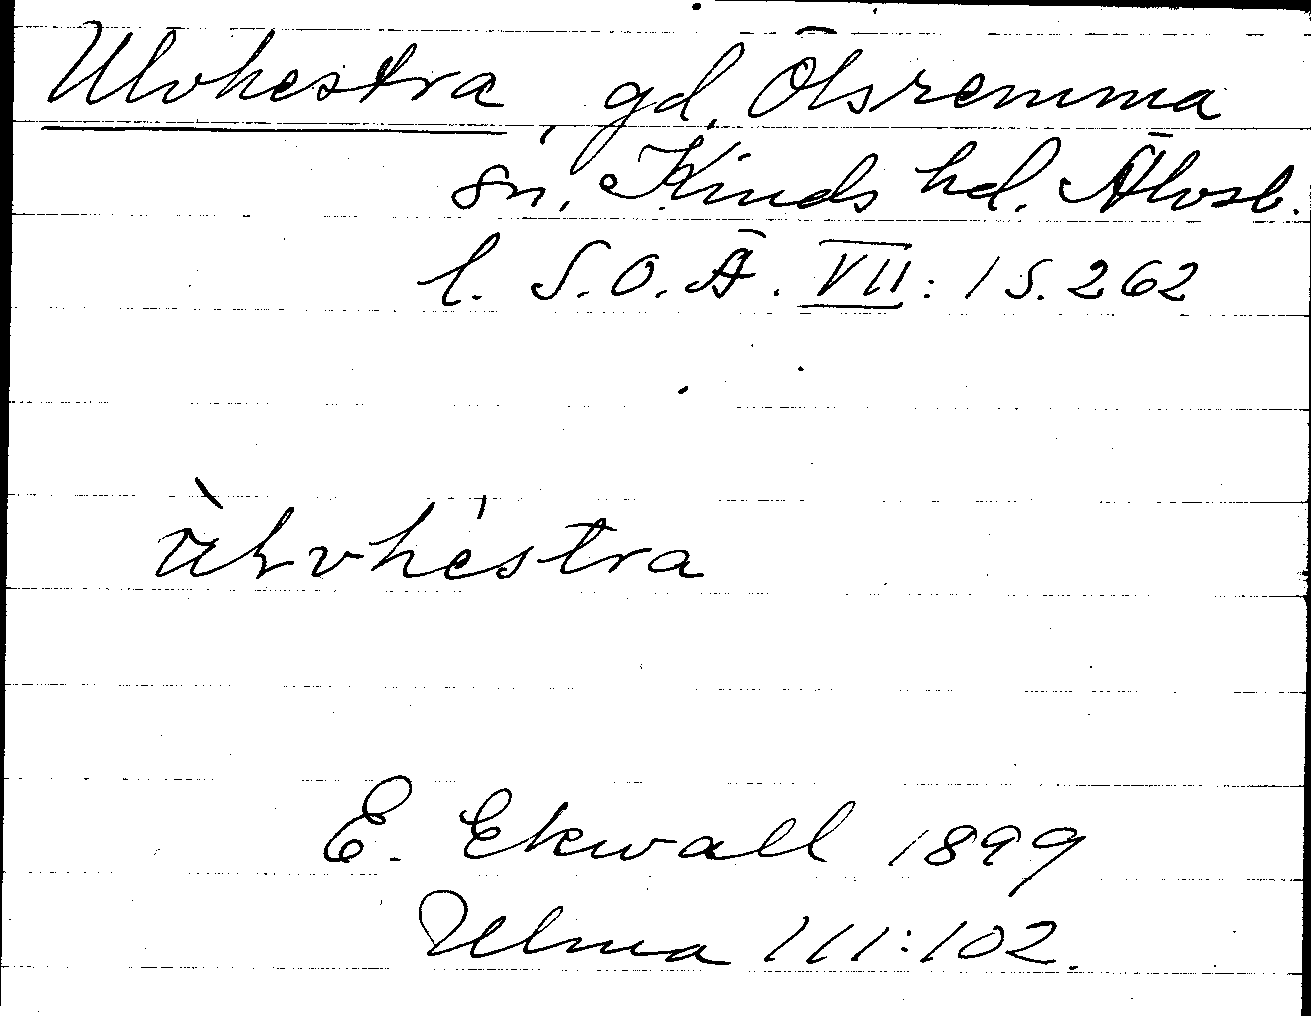 Ulvhestra, gd, Ölsremma
sn, Kinds hd. Älvsb.
l. S.O.Ä. VII: 1 S. 262
u̇̀lvhéstra
E. Ekwall 1899
Ulma 111:102.